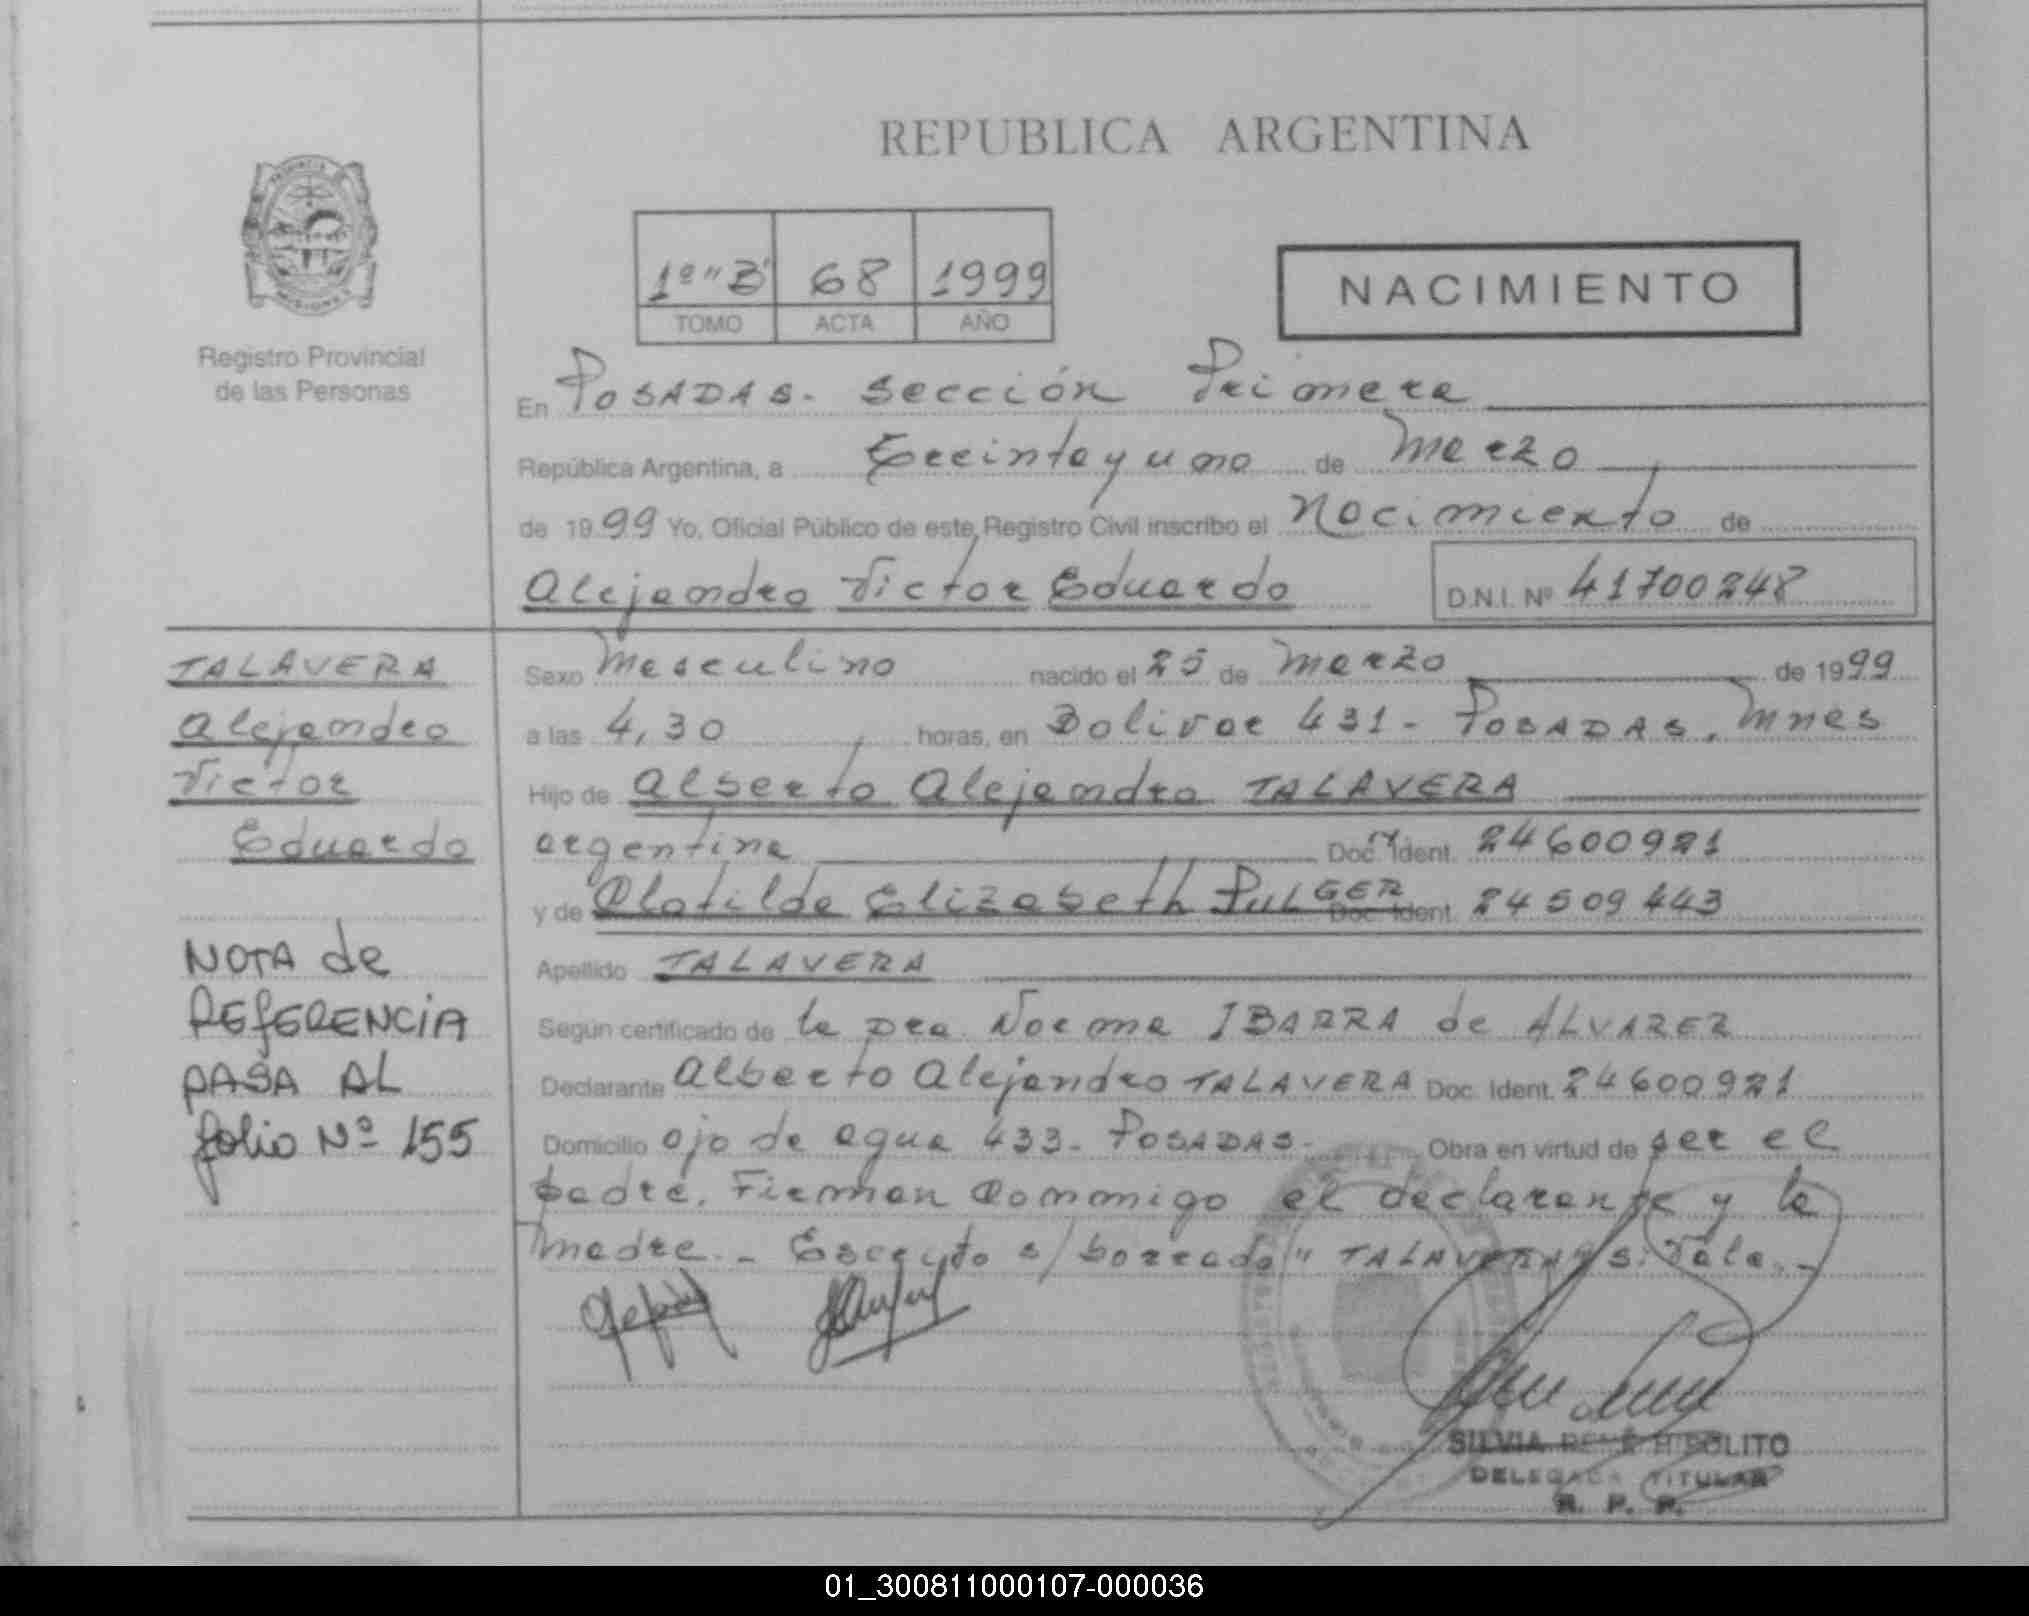 REPUBLICA ARGENTINA
PROVINCIA
MISIONES
Registro Provincial
de las Personas
1º "B" 68 1999
TOMO ACTA AÑO
NACIMIENTO
En POSADAS. Sección Primera
República Argentina, a treinta y uno de Marzo
de 1999 Yo, Oficial Público de este Registro Civil inscribo el Nacimiento de
Alejandro Victor Eduardo D.N.I. Nº 41700248
Sexo Masculino nacido el 25 de Marzo de 1999
a las 4,30 horas, en Bolivar 431 - POSADAS, Mnes
Hijo de Alberto Alejandro TALAVERA
argentina Doc. Ident. 24600921
y de Clotilde Elizabeth PULGER Doc. Ident. 24509443
Apellido TALAVERA
Según certificado de la Dra. Norma IBARRA de ALVAREZ
Declarante Alberto Alejandro TALAVERA Doc. Ident. 24600921
Domicilio ojo de agua 433- POSADAS- Obra en virtud de ser el
padre. Firman Conmigo el declarante y la
madre. - Escrito s/ borrado " TALAVERA" S: Vale. -
TALAVERA
Alejandro
Victor
Eduardo
NOTA de
REFERENCIA
PASA AL
folio Nº 155
SILVIA RENÉ HIPOLITO
DELEGADA TITULAR
R. P. P.
01_300811000107-000036